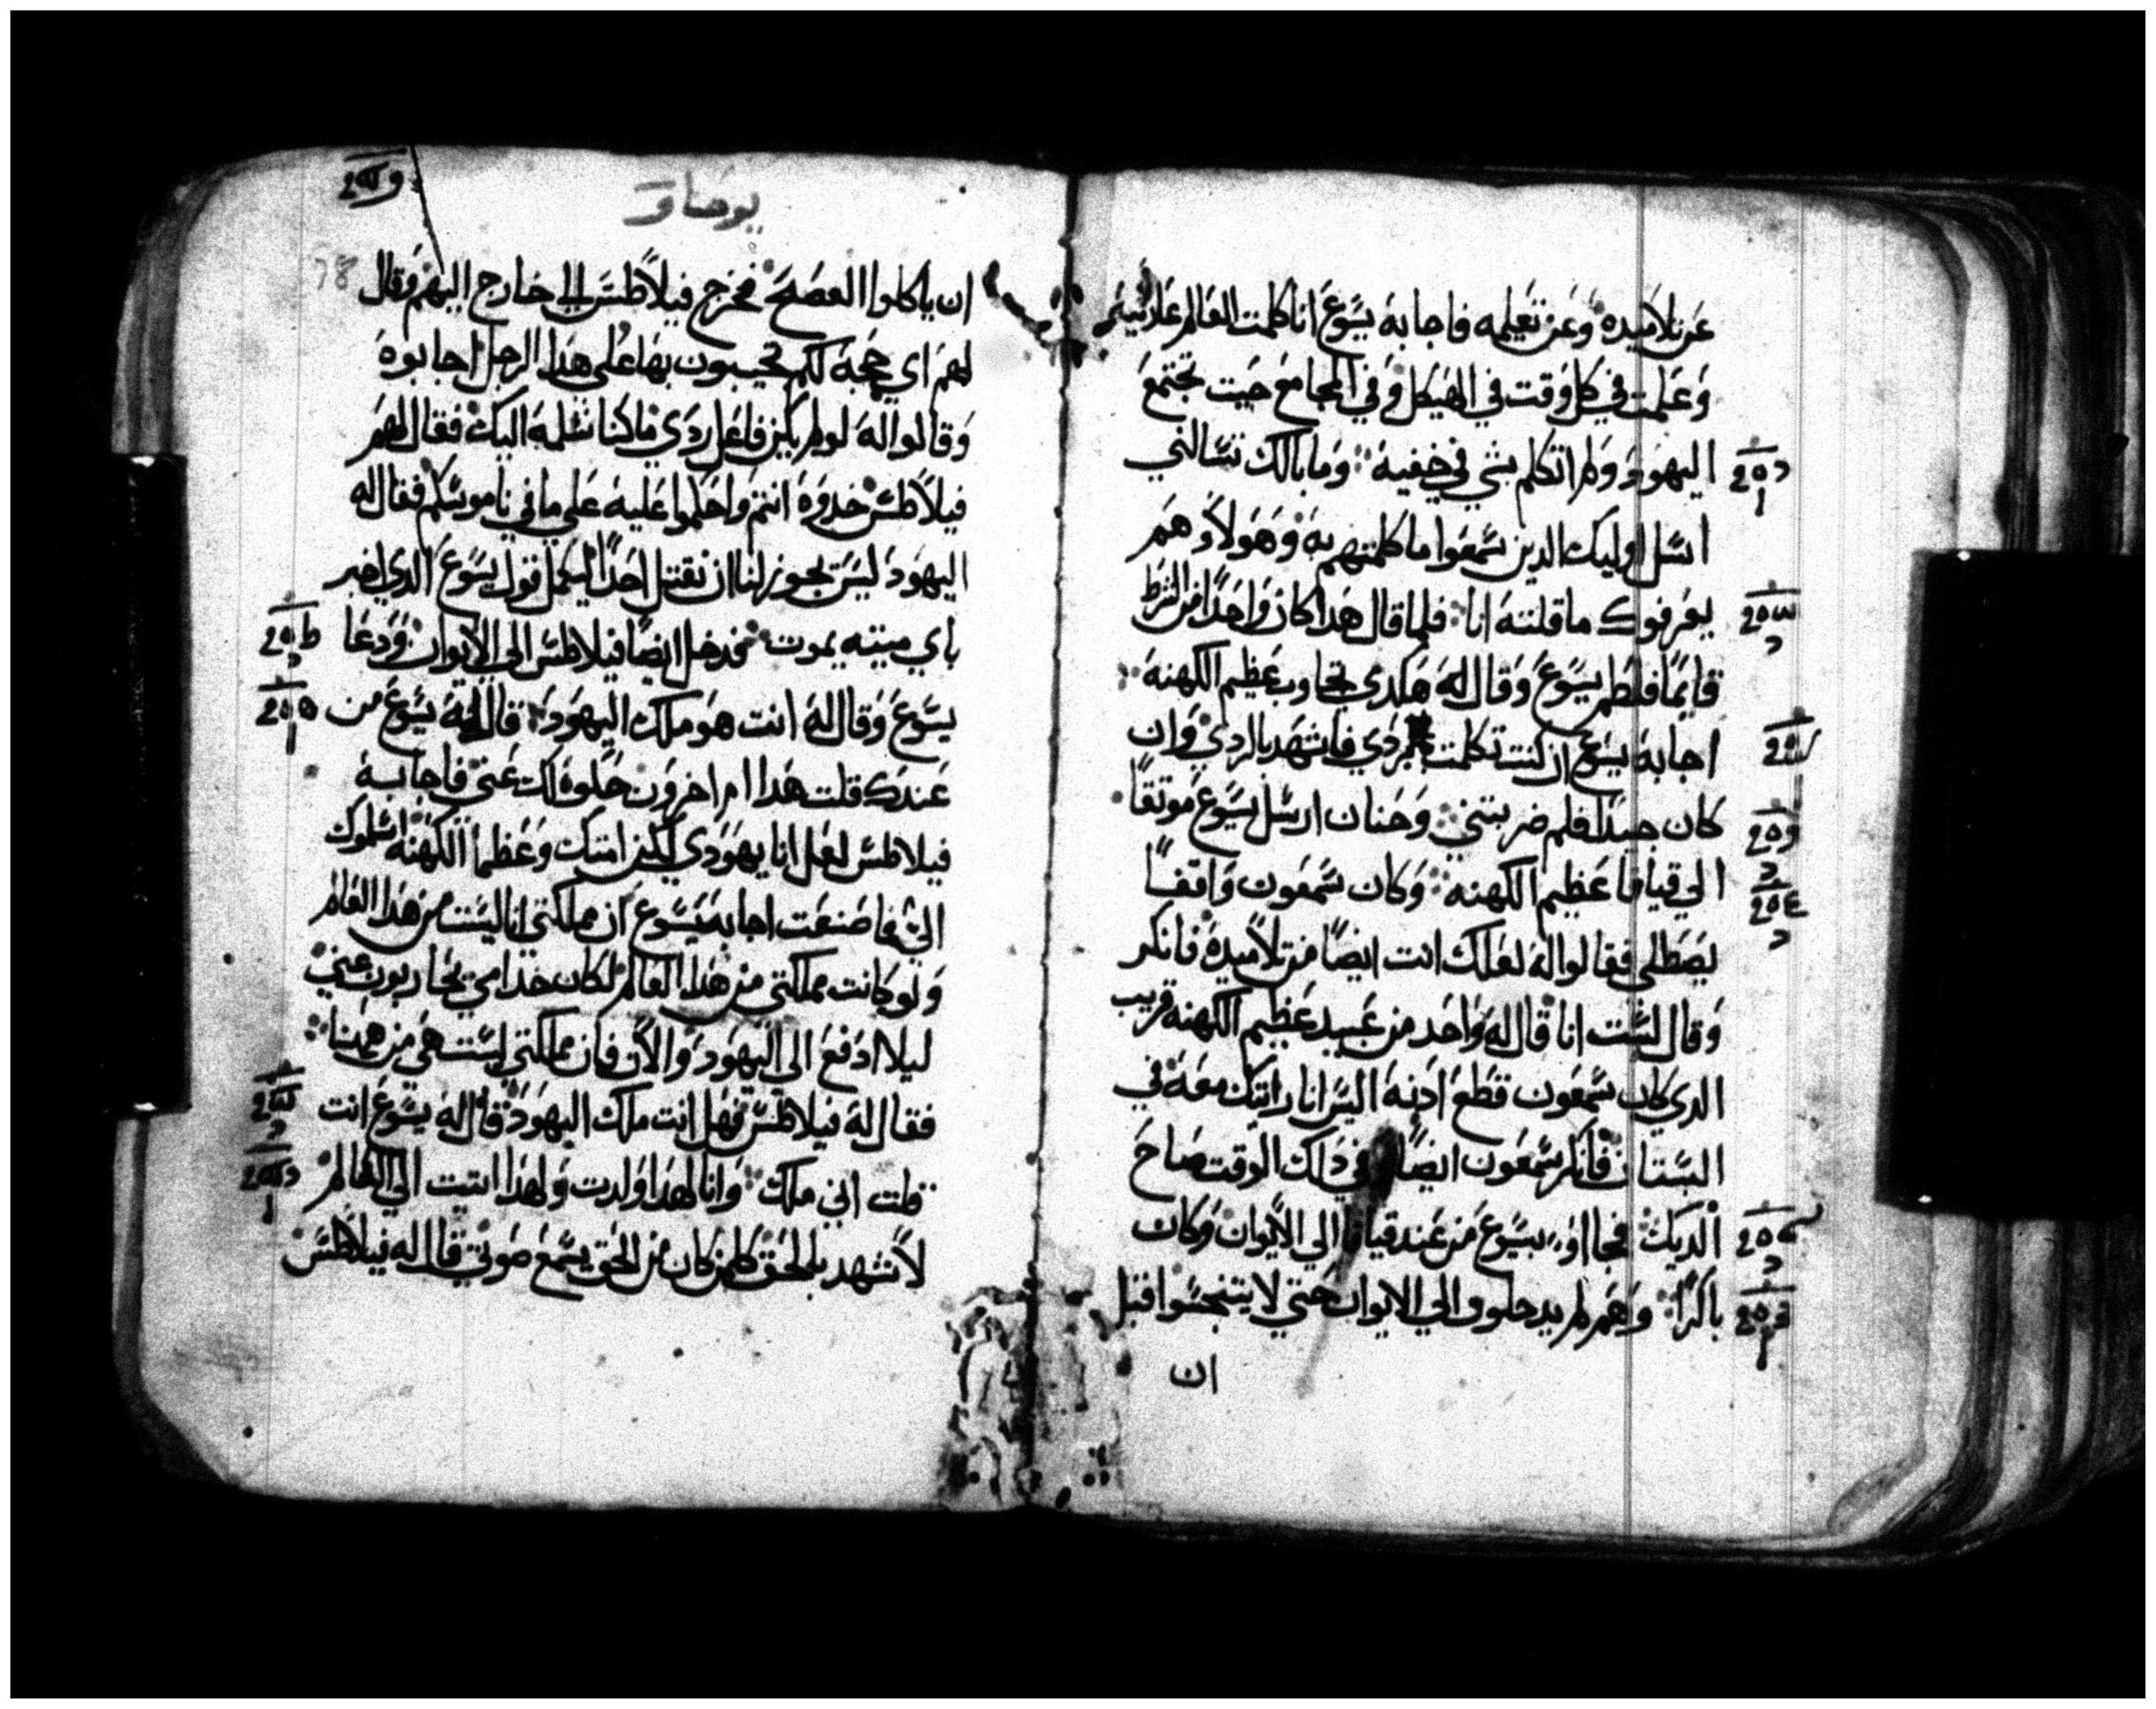 عن تلاميده وعن تعليمه فاجابه يسوع انا كلمت العالم علانيه
وعلمت في كل وقت في الهيكل وفي المجامع حيت تجتمع
اليهود ولم اتكلم بشي في خفيه وما بالك تسالني
اسل اوليك الدين سمعوا ما كلمتهم به وهولاء هم
يعرفوك ما قلته انا فلما قال هدا كان واحدا من الشرط
قايما فلطم يسوع وقال له هكدي تجاوب عظيم الكهنه
اجابه يسوع ان كنت تكلمت بردي فاشهد بالردي وان
كان جيدا فلم ضربتني وحنان ارسل يسوع موتقا
الي قيافا عظيم الكهنه وكان سمعون واقفا
يصطلي فقالوا له لعلك انت ايضا من تلاميده فانكر
وقال لست انا قال له واحد من عبيد عظيم الكهنه قريب
الدي كان سمعون قطع ادنه اليس انا رايتك معه في
البستان فانكر سمعون ايضا وفي دلك الوقت صاح
الديك فجااوا بيسوع من عند قيافا الي الايوان وكان
باكرا وهم لم يدخلوا الي الايوان حتي لا يتنجسوا قبل
ان
يوحنا
78
ان ياكلوا الفصح فخرج فيلاطس الي خارج اليهم وقال
لهم اي حجه لكم تجيبون بها علي هدا الرجل اجابوه
وقالوا له لو لم يكن فاعل ردي ما كنا نسلمه اليك فقال لهم
فيلاطس خدوه انتم واحكموا عليه علي ما في ناموسكم فقال له
اليهود ليس يجوز لنا ان نقتل احدا ليكمل قول يسوع الدي اخبر
باي ميته يموت فدخل ايضا فيلاطس الي الايوان ودعا
يسوع وقال له انت هو ملك اليهود قال له يسوع من
عندك قلت هدا ام اخرون حكوه لك عني فاجابه
فيلاطس لعل انا يهودي لكن امتك وعظما الكهنه اسلموك
الي فما صنعت اجابه يسوع ان مملكتي انا ليست من هدا العالم
ولو كانت مملكتي من هدا العالم لكان خدامي يحاربون عني
ليلا ادفع الي اليهود والان فان مملكتي ليست هي من ههنا
فقال له فيلاطس فهل انت ملك اليهود قال له يسوع انت
قلت اني ملك وانا لهدا ولدت ولهدا اتيت الي العالم
لاشهد بالحق كلمن كان من الحق يسمع صوتي قال له فيلاطس